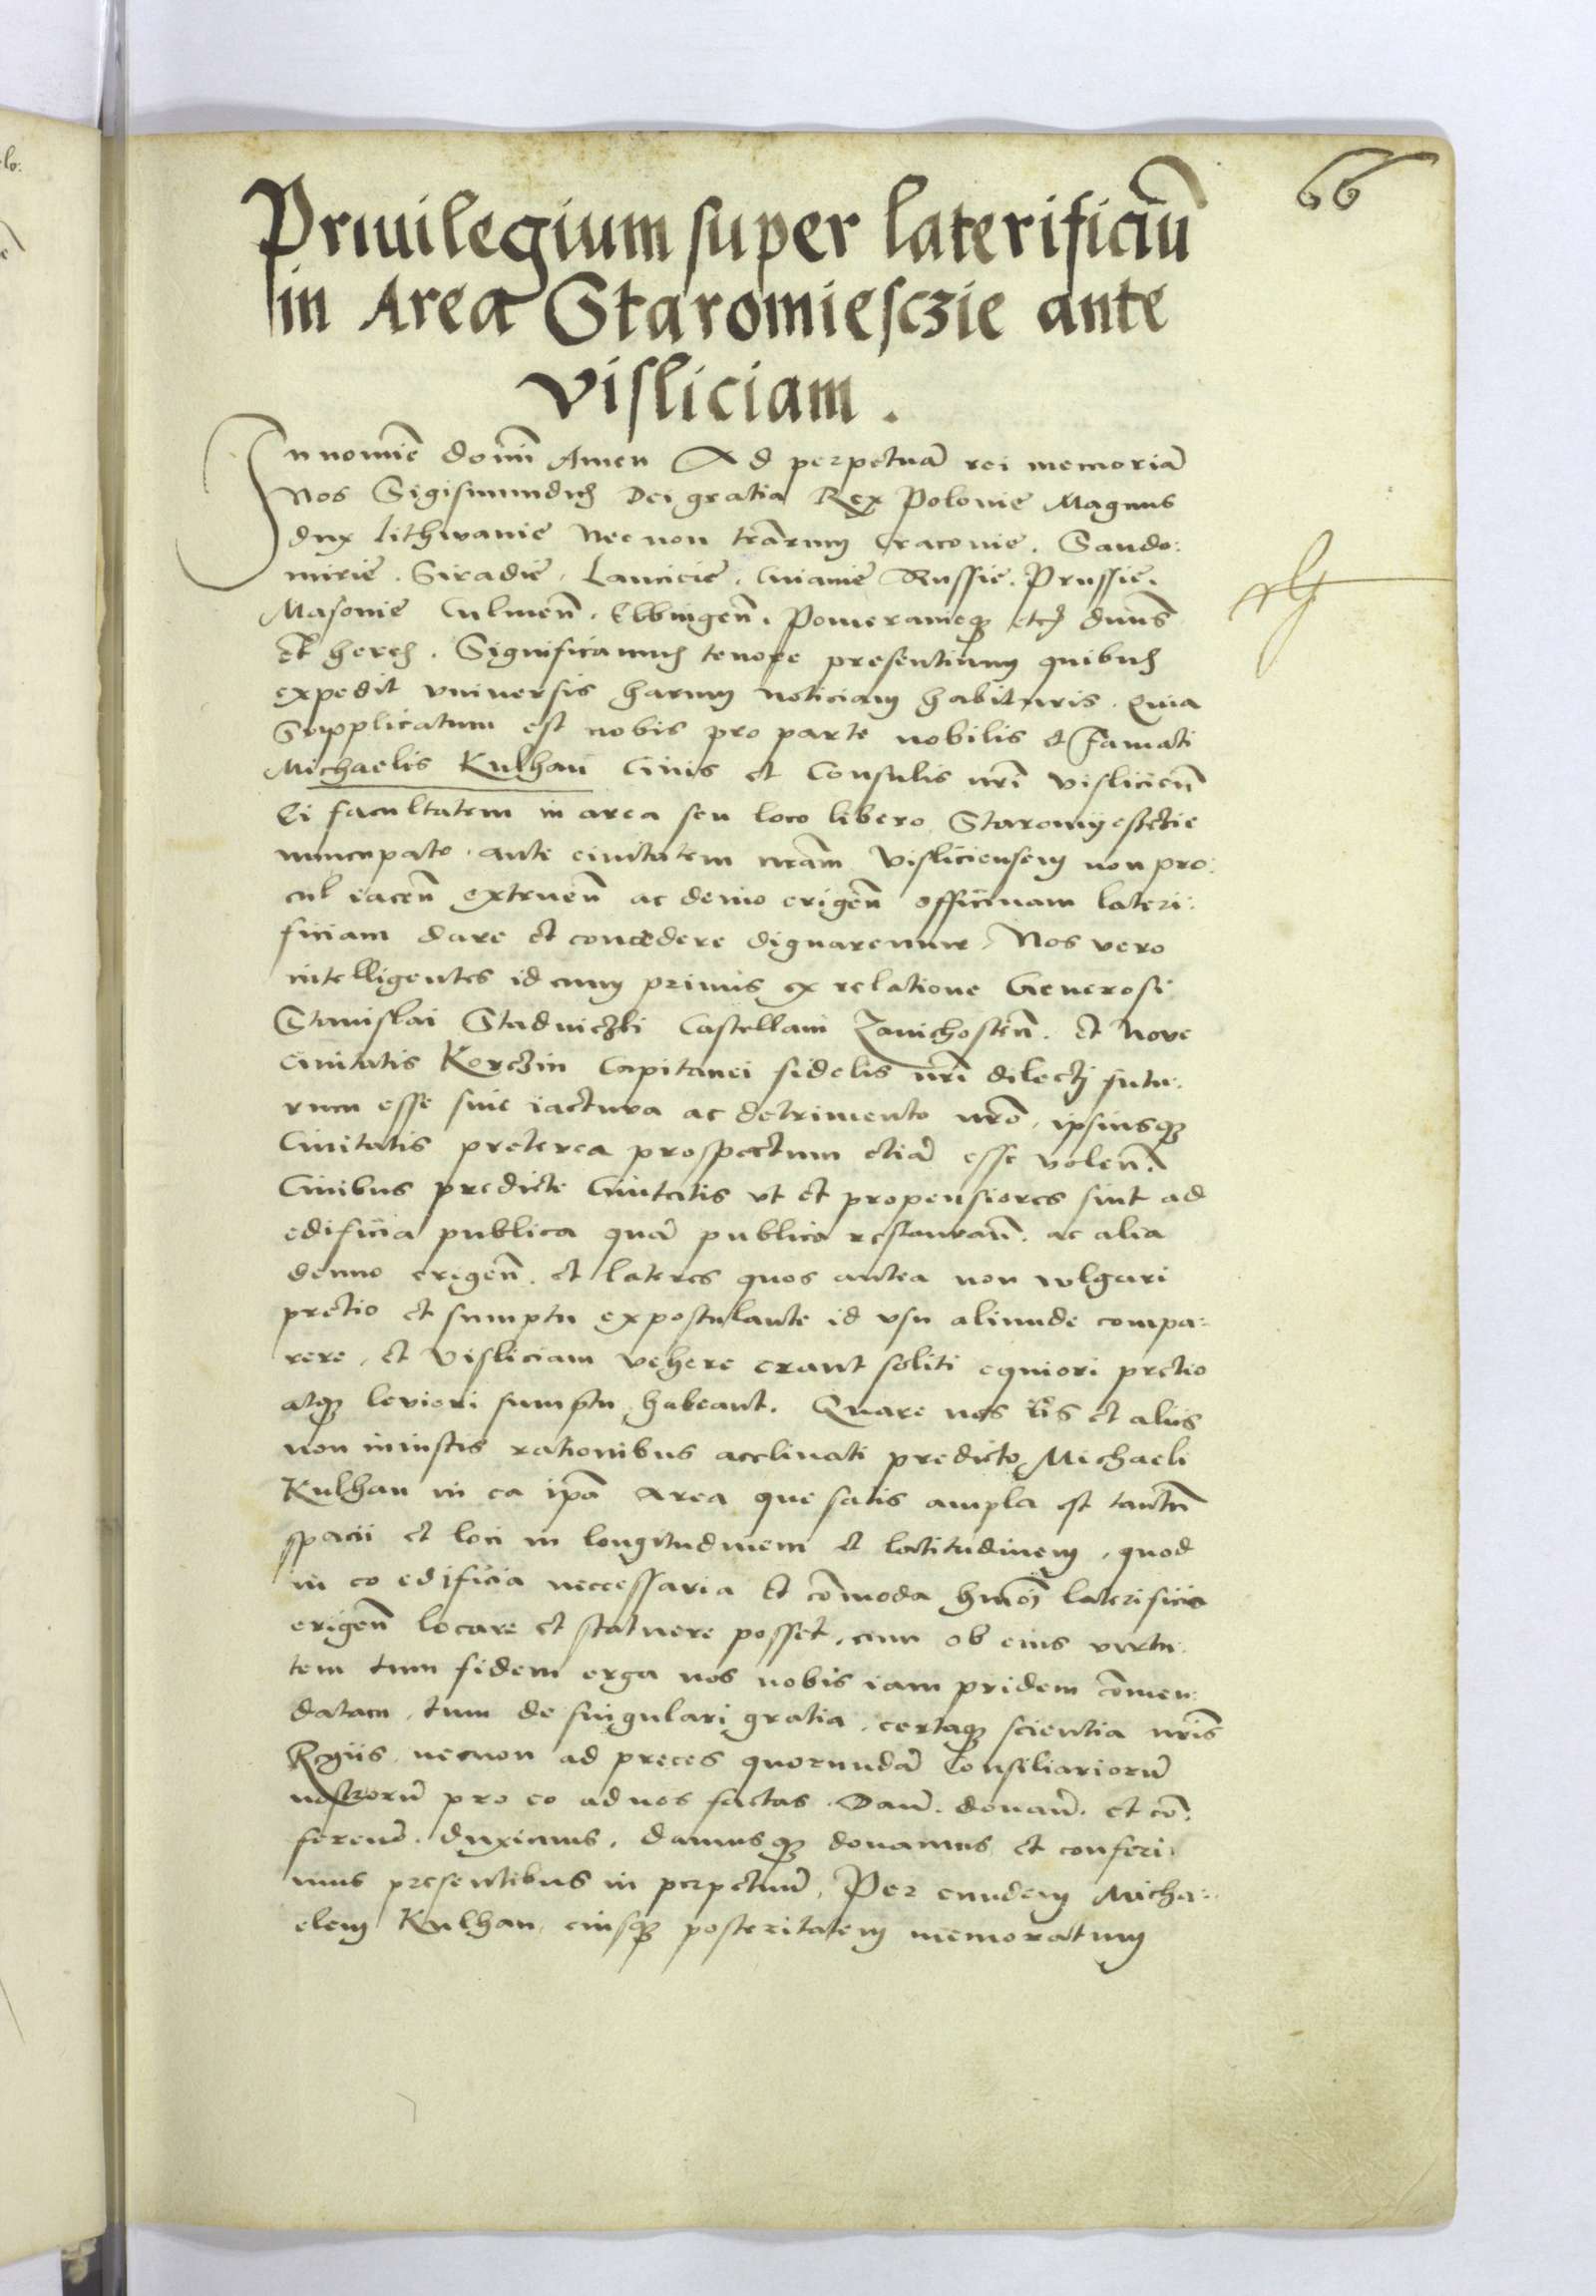 66
Priuilegium super laterificiū
in Area Staromiesczie ante
Visliciam.
In nomīe domī Amen Ad perpetuā rei memoriā
Nos Sigismundus Dei gratia Rex Polonie Magnus
dux Lithwanie Necnon trārum Cracouie. Sando:
mirie. Siradie. Lancicie. Cuiauie Russie. Prussie.
Masouie Culmeñ. Elbingeñ. Pomeranieqꝫ etc dñus
Et heres. Significamus tenore presentium quibus
expedit vniuersis harum noticiam habituris. Quia
Supplicatum est nobis pro parte nobilis et Famati
Michaelis Kulhan Ciuis et Consulis nrī Visliceñ
Ei facultatem in area seu loco libero Staromyesczie
nuncupato. ante ciuitatem nrām Visliciensem non pro:
cul iaceñ extrueñ ac denuo erigeñ officinam lateri:
ficiam dare et concedere dignaremur. Nos vero
intelligentes id cum primis ex relatione Generosi
Stanislai Stadniczki Castellani Zauichosteñ. et Noue
Ciuitatis Korczin Capitanei fidelis nrī dilecti futu:
rum esse sine iactura ac detrimento nrō. ipsiusqꝫ
Ciuitatis preterea prospectum etiā esse voleñ.
Ciuibus predicte Ciuitatis vt et propensiores sint ad
edificia publica quā publica restaurañ. ac alia
denuo erigeñ. et lateres quos antea non vulgari
pretio et sumptu expostulante id vsu aliunde compa:
rere. et Visliciam vehere erant soliti equiori pretio
atqꝫ leuiori sumptu habeant. Quare nos iis et aliis
non iniustis rationibus acclinati predicto Michaeli
Kulhan in ea ipā Area que satis ampla est tantū
spacii et loci in longitudinem et latitudinem. quod
in eo edificia neccessaria et cōmoda hmōi laterificio
erigeñ locare et statuere posset. cum ob eius virtu:
tem tum fidem erga nos nobis iam pridem cōmen:
datam. tum de singulari gratia. certaqꝫ scientia nrīs
Regiis necnon ad preces quorundā Consiliariorū
nostrorū pro eo ad nos factas. Dañ. donañ. et cō:
fereñ. duximus. damusqꝫ donamus et conferi:
mus presentibus in perpetuū. Per eundem Micha:
elem Kulhan eiusqꝫ posteritatem memoratum